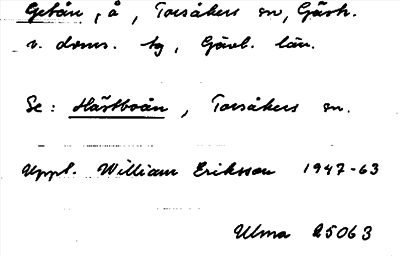 Getån, å, Torsåkers sn, Gästr.
v. doms. tg, Gävl. län.
Se: Hästboån, Torsåkers sn.
Uppl. William Eriksson 1947-63
Ulma 25063